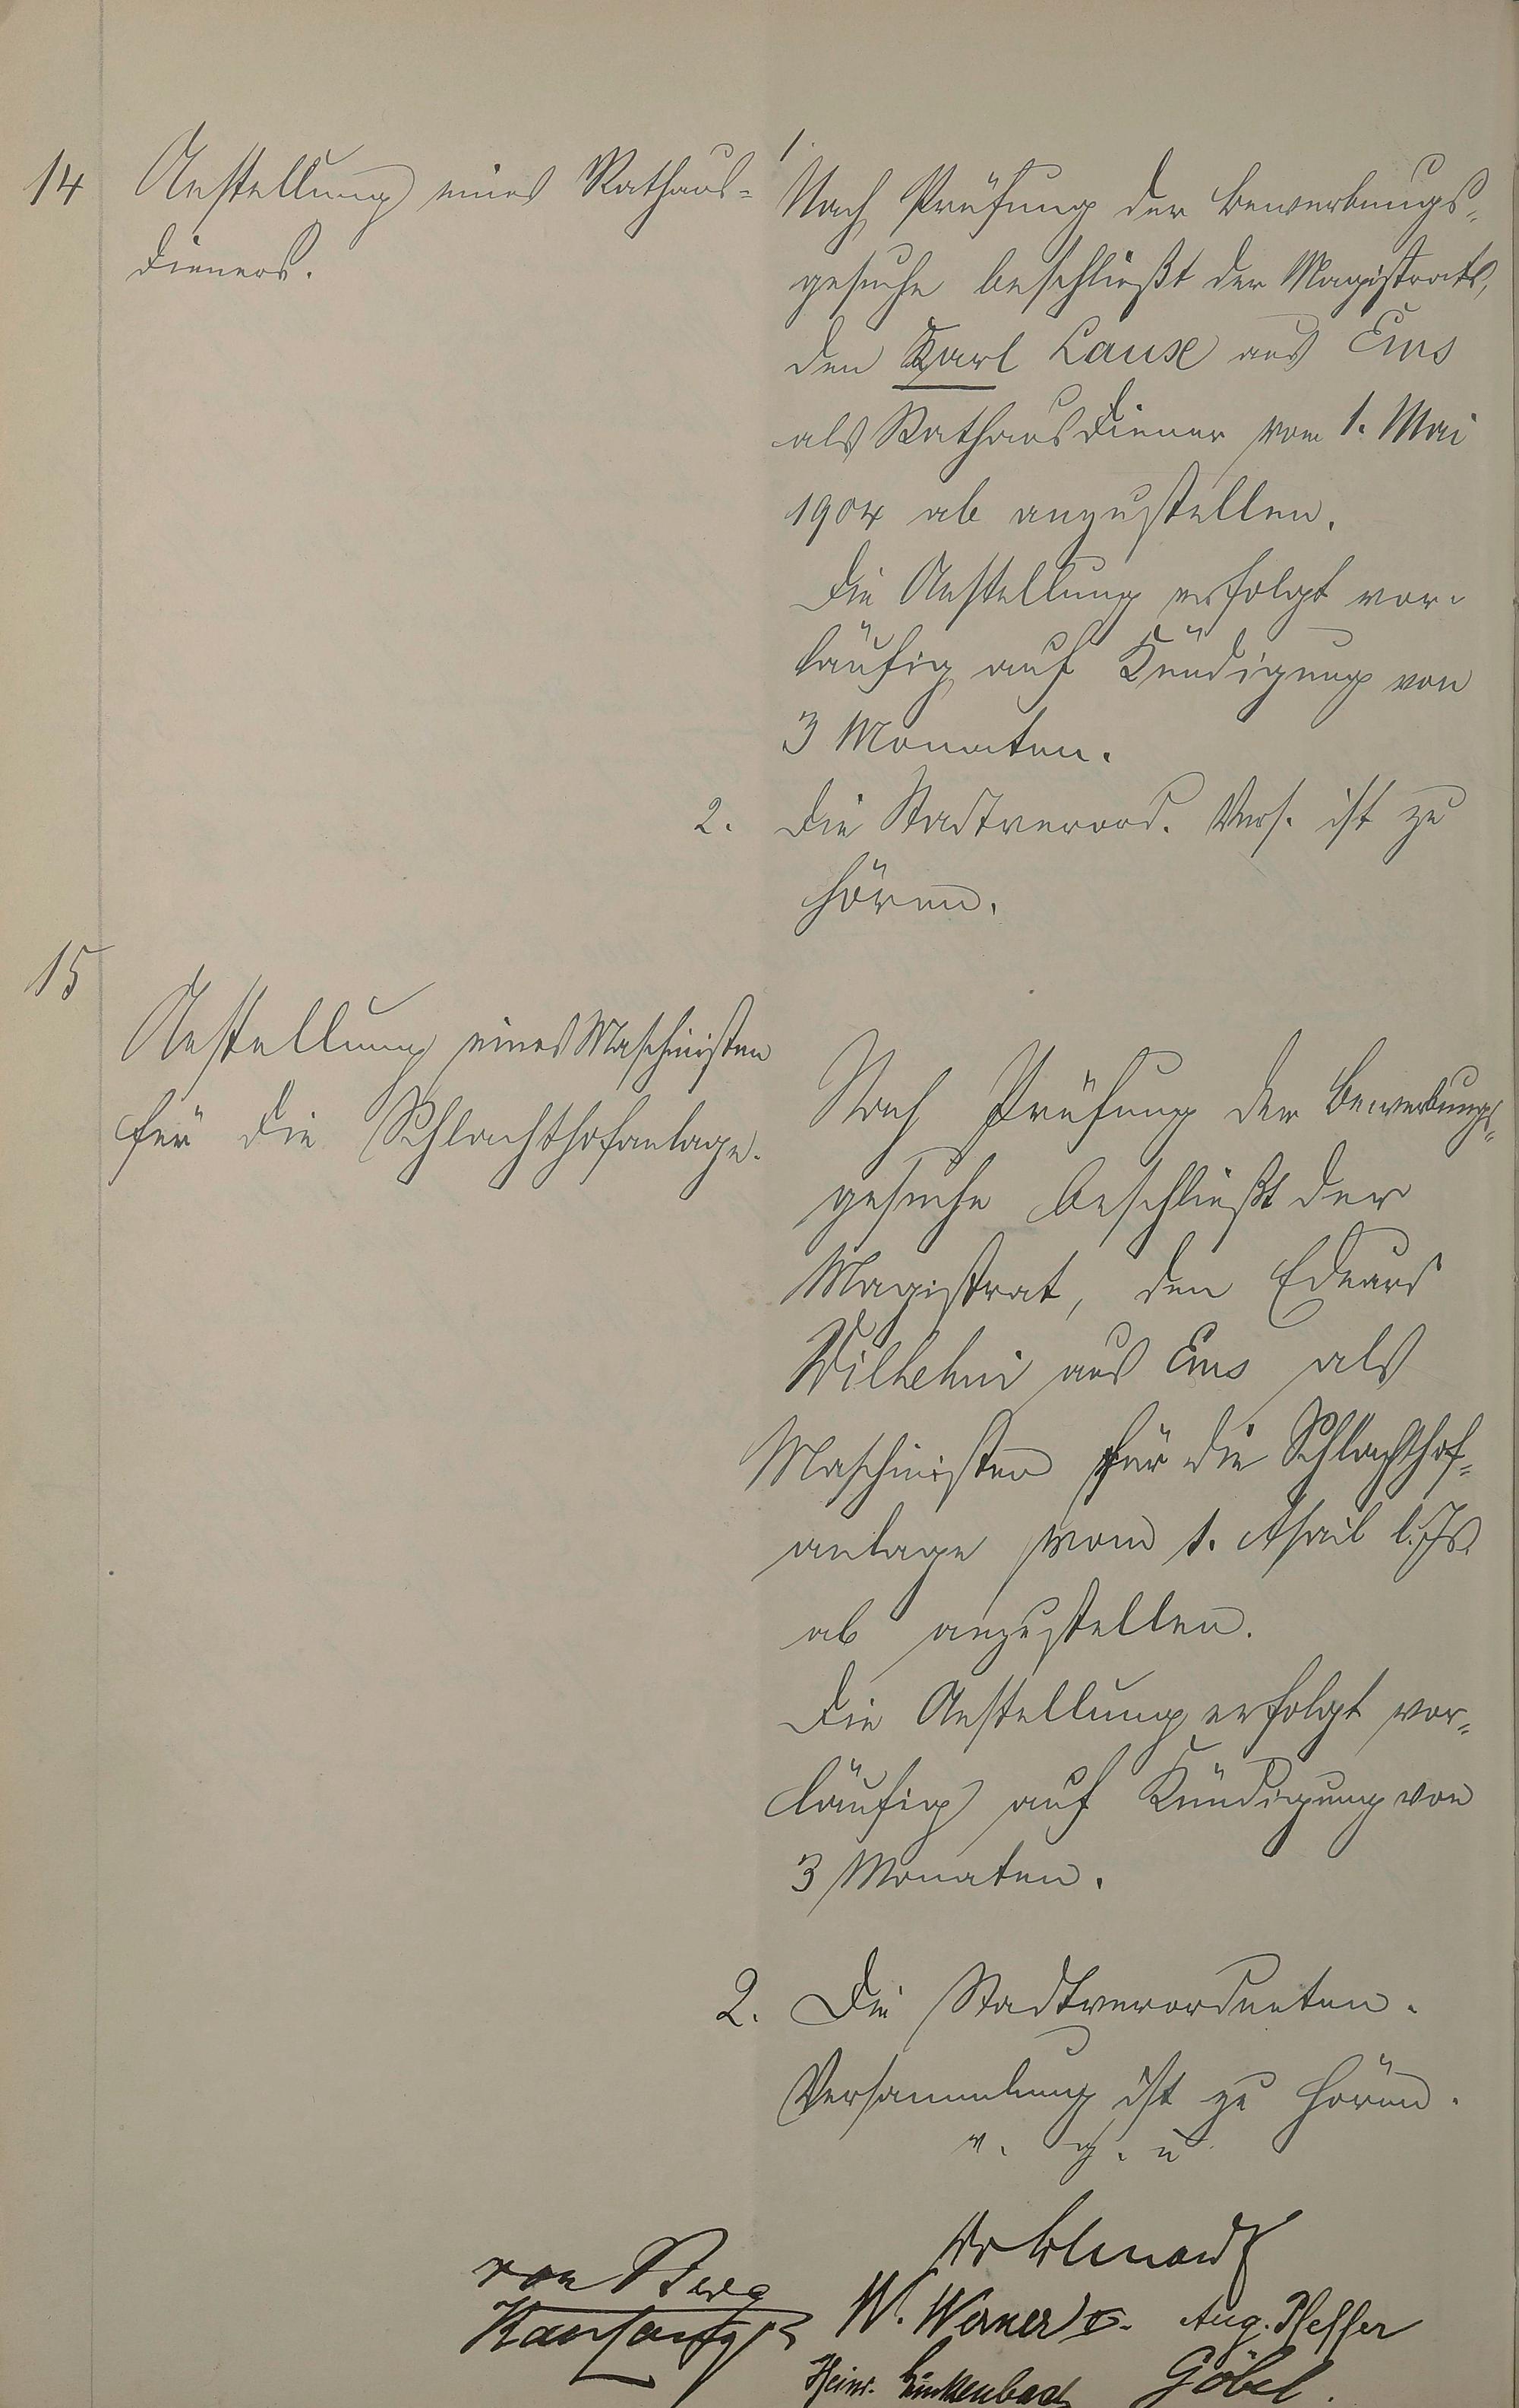 14
Anstellung eines Rathaus-
dieners.
1.
Nach Prüfung der Bewerbungs-
gesuche beschließt der Magistrat,
den Karl Lause aus Ems
als Rathausdiener vom 1. Mai
1904 ab anzustellen.
Die Anstellung erfolgt vor-
läufig auf Kündigung von
3 Monaten.
2. Die Stadtverord. Vers. ist zu
hören.
15
Anstellung eines Maschinisten
für die Schlachthofanlage.
Nach Prüfung der Bewerbungs-
gesuche beschließt der
Magistrat, den Eduard
Wilhelmi aus Ems als
Maschinisten für die Schlachthof-
anlage vom 1. April l. Js.
ab anzustellen.
Die Anstellung erfolgt vor-
läufig auf Kündigung von
3 Monaten.
2. Die Stadtverordneten-
Versammlung ist zu hören.
v. g. u.
von Berg
W. Werner Aug. Pfeffer
Heinr. Linkenbach Göbel.